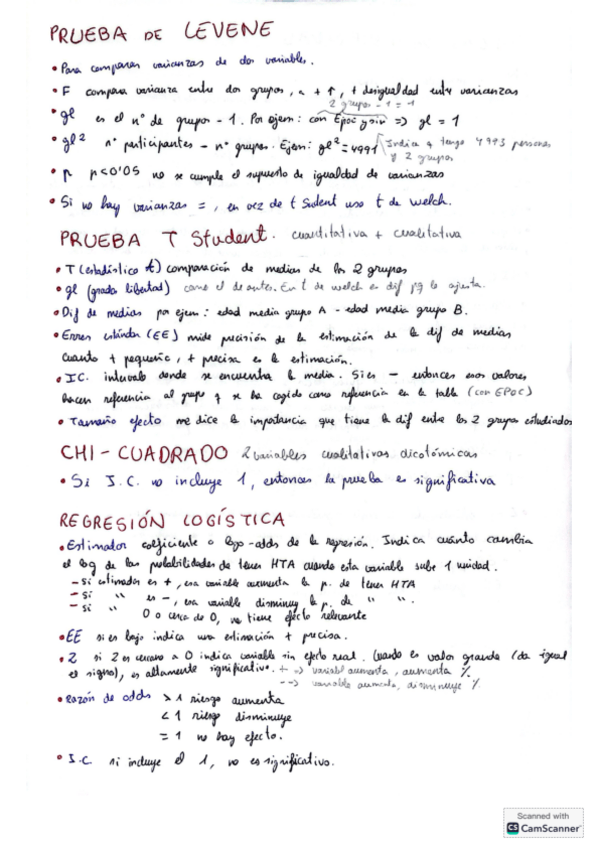 PRUEBA DE LEVENE
• Para comparar varianzas de dos variables.
• F compara varianza entre dos grupos, a + ↑, + desigualdad entre varianzas
2 grupos - 1 = 1
• gl es el nº de grupos - 1. Por ejem: con Epoc y sin => gl = 1
• gl2 nº participantes - nº grupos. Ejem: gl2 = 4991 Indica q tengo 4993 personas
y 2 grupos
• p p<0'05 no se cumple el supuesto de igualdad de varianzas
• Si no hay varianzas =, en vez de t Student uso t de welch.
PRUEBA T Student. cuantitativa + cualitativa
• T (estadístico t) comparación de medias de los 2 grupos
• gl (grado libertad) como el de antes. En t de welch es dif pq lo ajusta.
• Dif de medias por ejem: edad media grupo A - edad media grupo B.
• Error estándar (EE) mide precisión de la estimación de la dif de medias
cuanto + pequeño, + precisa es la estimación.
• I.C. intervalo donde se encuentra la media. Si es - entonces esos valores
hacen referencia al grupo q se ha cogido como referencia en la tabla (con EPOC)
• Tamaño efecto me dice la importancia que tiene la dif entre los 2 grupos estudiados
CHI-CUADRADO 2 variables cualitativas dicotómicas
• Si I.C. no incluye 1, entonces la prueba es significativa
REGRESIÓN LOGÍSTICA
• Estimador coeficiente o logo-odds de la regresión. Indica cuánto cambia
el log de las probabilidades de tener HTA cuando esta variable sube 1 unidad.
- Si estimador es +, esa variable aumenta la p. de tener HTA
- Si " es -, esa variable disminuy la p. de " ".
- Si " 0 o cerca de 0, no tiene efecto relevante
• EE si es bajo indica una estimación + precisa.
• Z si Z es cercano a 0 indica variable sin efecto real. Cuando es valor grande (da igual
el signo), es altamente significativo. + => variable aumenta, aumenta %
- => variable aumenta, disminuye %
• Razón de odds > 1 riesgo aumenta
< 1 riesgo disminuye
= 1 no hay efecto.
• I.C. si incluye el 1, no es significativo.
Scanned with
CS CamScanner